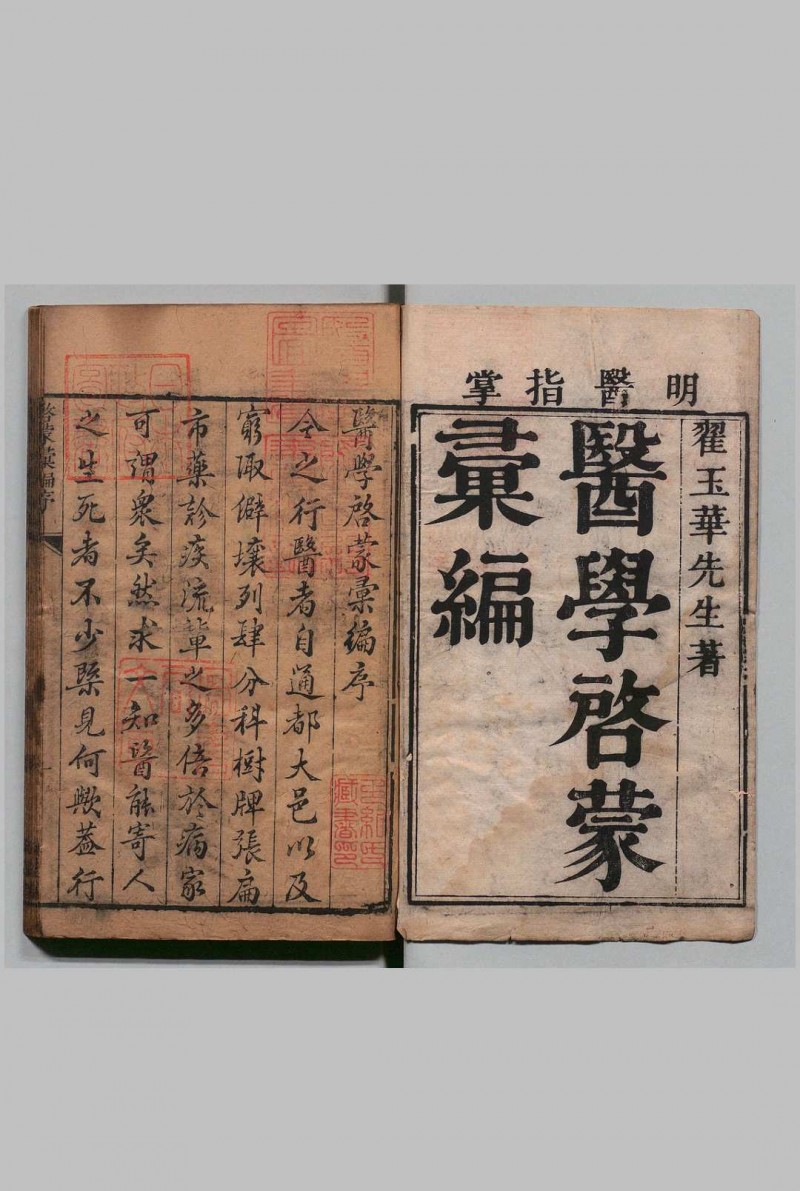 明醫指掌
翟玉華先生著
醫學啓蒙
彙編
醫學啓蒙彙編序
今之行醫者自通都大邑以及
窮陬僻壤列肆分科樹牌張扁
市藥診疾流輩之多倍於病家
可謂衆矣然求一知醫能寄人
之生死者不少槩見何歟蓋行
啓蒙彙編序
藏書